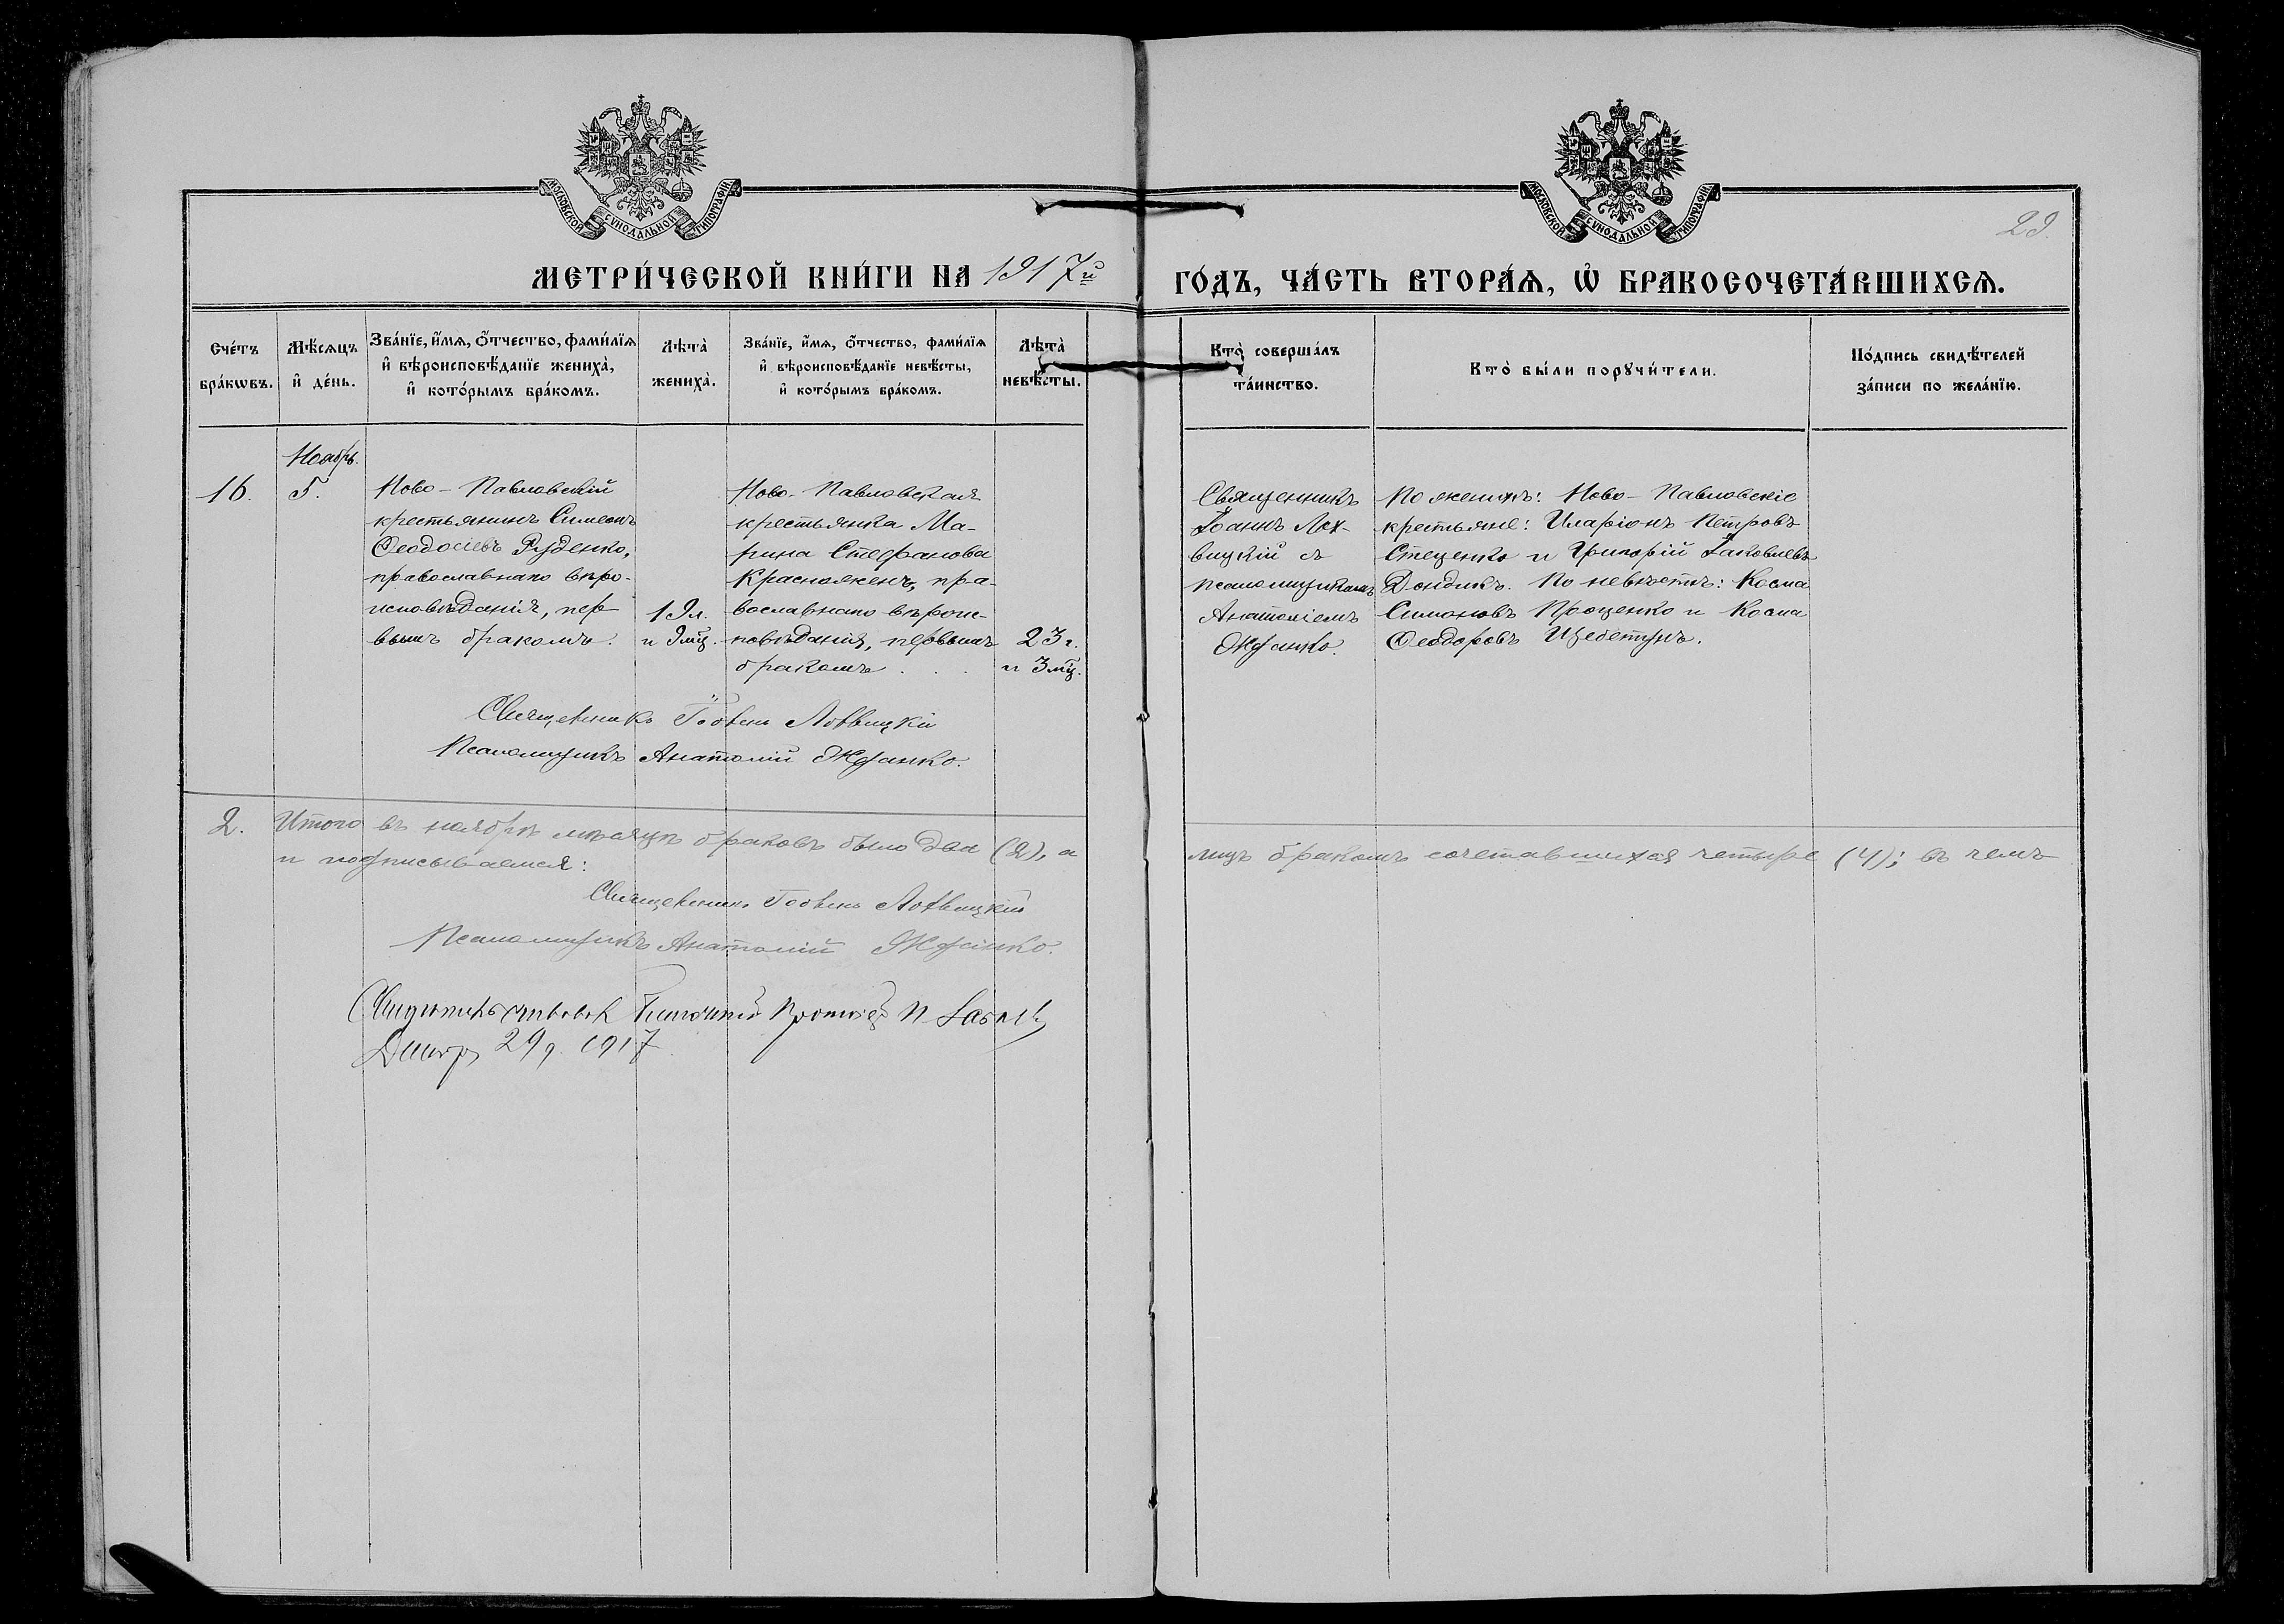 МОСКОВСКОЙ СѴНОДАЛЬНОЙ ТИПОГРАФІИ
МОСКОВСКОЙ СѴНОДАЛЬНОЙ ТИПОГРАФІИ
29.
МЕТРИ́ЧЕСКОЙ КНИ́ГИ НА 1917й ГО́ДЪ, ЧА́СТЬ ВТОРА́Ѧ, Ѡ҆ БРАКОСОЧЕТА́ВШИХСѦ.
Сче́тъ
бра́кѡвъ.
Мѣ́сѧцъ
и҆ де́нь.
Зва́нїе, и҆́мѧ, ѻ҆́тчество, фами́лїѧ
и҆ вѣроисповѣ́данїе жениха̀,
и҆ кото́рымъ бра́комъ.
Лѣта̀
жениха̀.
Зва́нїе, и҆́мѧ, ѻ҆́тчество, фами́лїѧ
и҆ вѣроисповѣ́данїе невѣ́сты,
и҆ кото́рымъ бра́комъ.
Лѣта̀
невѣ́сты.
Кто̀ соверша́лъ
та́инство.
Кто̀ бы́ли порꙋчи́тели.
По́дпись свидѣ́телей
за́писи по жела́нїю.
Ноябрь.
16.
5.
Ново-Павловскій
крестьянинъ Симеонъ
Ѳеодосіевъ Руденко,
православнаго вѣро-
исповѣданія, пер-
вымъ бракомъ.
19 л.
и 9 мц.
Ново-Павловская
крестьянка Ма-
рина Стефанова
Красножонъ, пра-
вославнаго вѣроис-
повѣданія, первымъ
бракомъ . . .
23 г.
и 3 мц.
Священникъ
Іоаннъ Лох-
вицкій съ
псаломщикомъ
Анатоліемъ
Жданко.
По женихѣ: Ново-Павловскіе
крестьяне: Иларіонъ Петровъ
Стеценко и Григорій Іаковлевъ
Дондикъ. По невѣстѣ: Косма
Симоновъ Проценко и Косма
Ѳеодоровъ Щебетунъ.
Священникъ Іоаннъ Лохвицкій
Псаломщикъ Анатолій Жданко.
2. Итого въ ноябрѣ мѣсяцѣ браковъ было два (2), а лицъ бракомъ сочетавшихся четыре (4); въ чемъ
и подписываемся:
Священникъ Іоаннъ Лохвицкій
Псаломщикъ Анатолій Жданко.
29 д. 1917